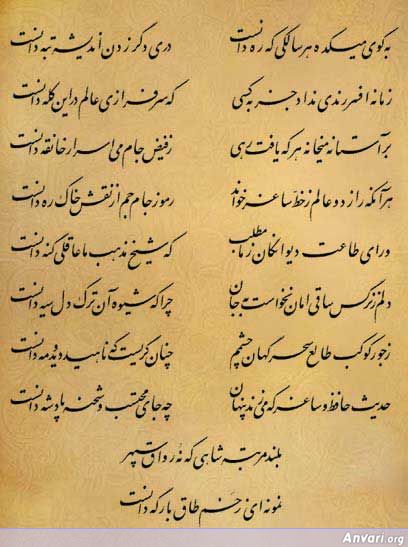 به کوی میکده هر سالکی که ره دانست دری دگر زدن اندیشه تبه دانست
زمانه افسر رندی نداد جز به کسی که سرفرازی عالم در این کله دانست
بر آستانه میخانه هر که یافت رهی ز فیض جام می اسرار خانقه دانست
هر آنکه راز دو عالم ز خط ساغر خواند رموز جام جم از نقش خاک ره دانست
ورای طاعت دیوانگان ز ما مطلب که شیخ مذهب ما عاقلی گنه دانست
دلم ز نرگس ساقی امان نخواست به جان چرا که شیوه آن ترک دل سیه دانست
ز جور کوکب طالع سحرگهان چشمم چنان گریست که ناهید دید و مه دانست
حدیث حافظ و ساغر که می‌زند پنهان چه جای محتسب و شحنه پادشه دانست
بلند مرتبه شاهی که نه رواق سپهر
نمونه‌ای ز خم طاق بارگه دانست
Anvari.org